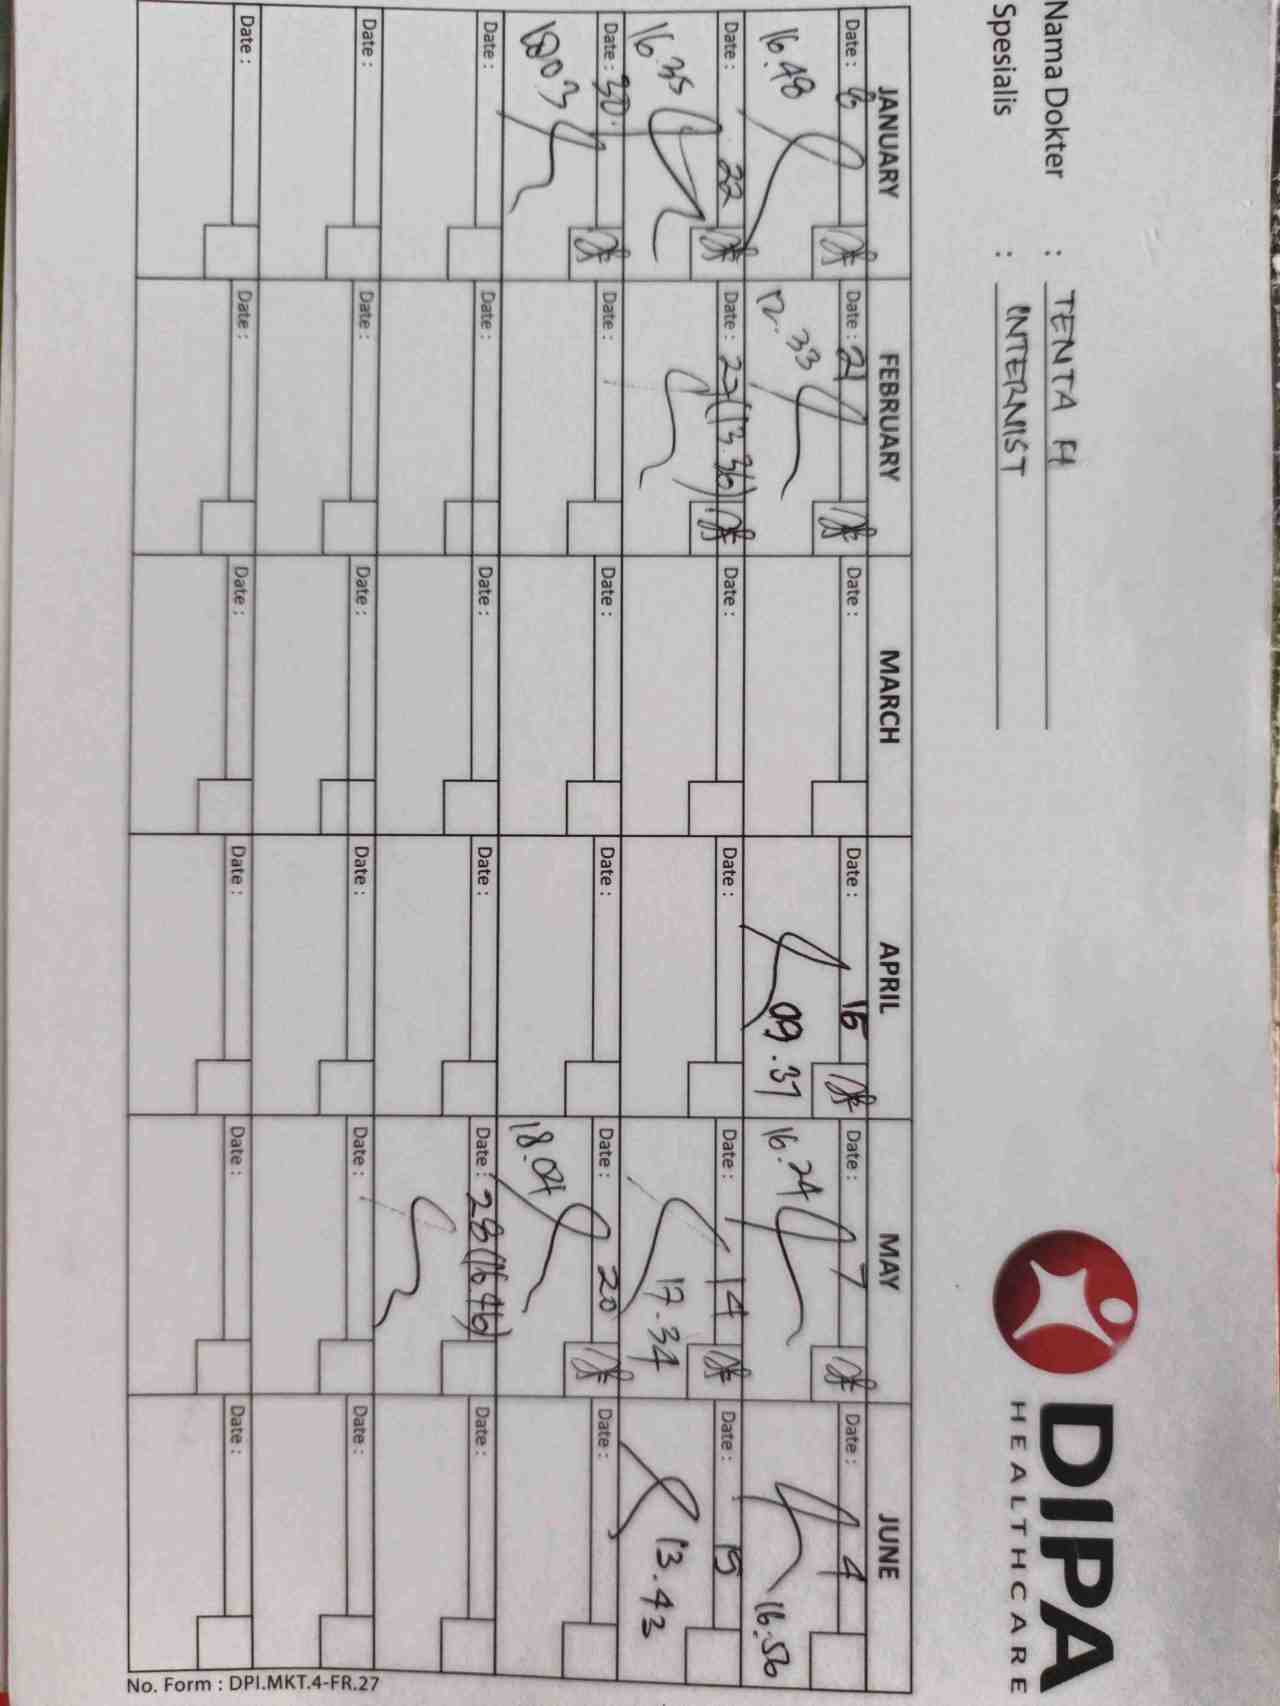 DIPA
HEALTHCARE
Nama Dokter : TENTA H
Spesialis : INTERNIST
JANUARY FEBRUARY MARCH APRIL MAY JUNE
Date : 8 Date : 21 Date : Date : 15 Date : 7 Date : 4
16.48 12.33 09.37 16.24 16.56
Date : 22 Date : 27 (13.36) Date : Date : Date : 14 Date : 15
16.35 17.34 13.43
Date : 30. Date : Date : Date : Date : 20 Date :
18.03 18.04
Date : Date : Date : Date : Date : 28 (16.46) Date :
Date : Date : Date : Date : Date : Date :
Date : Date : Date : Date : Date : Date :
No. Form : DPI.MKT.4-FR.27